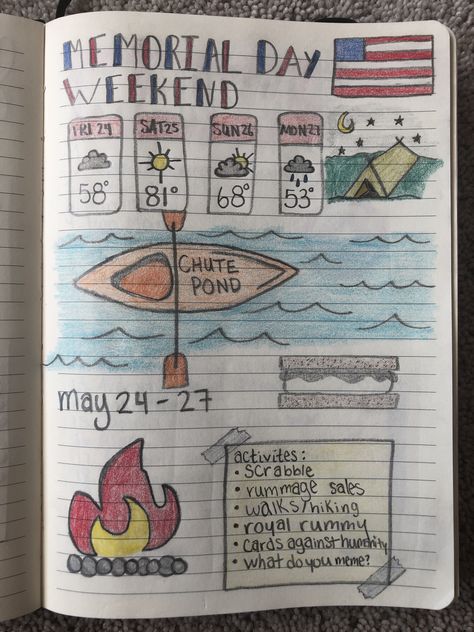 MEMORIAL DAY
WEEKEND
FRI 24 SAT 25 SUN 26 MON 27
58° 81° 68° 53°
CHUTE
POND
may 24 - 27
activites:
• scrabble
• rummage sales
• walks/hiking
• royal rummy
• cards against humanity
• what do you meme?